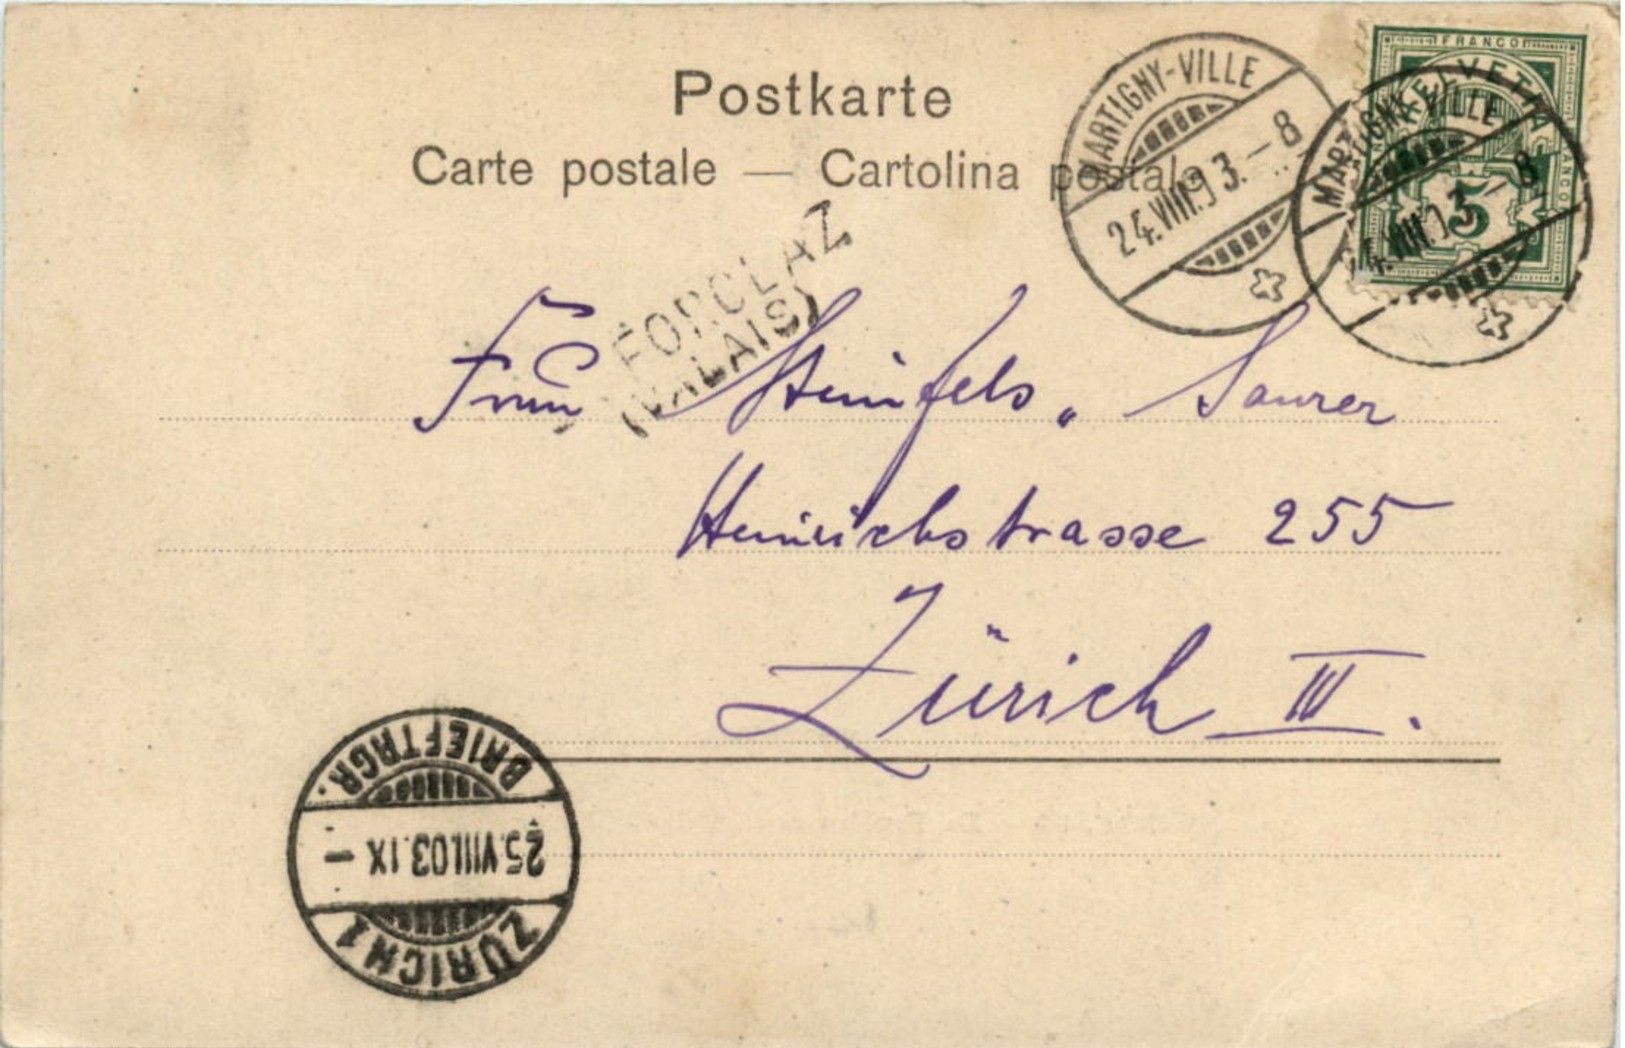 Postkarte
Carte postale — Cartolina postale
MARTIGNY-VILLE
24.VIII.03.–8
FRANCO
HELVETIA
FRANCO
5
MARTIGNY-VILLE
24.VIII.03–8
FORCLAZ
(VALAIS)
Frau Steinfels, Saurer
Heinrichstrasse 255
Zürich III.
ZÜRICH 1
25.VIII.03.IX –
BRIEFTRGR.